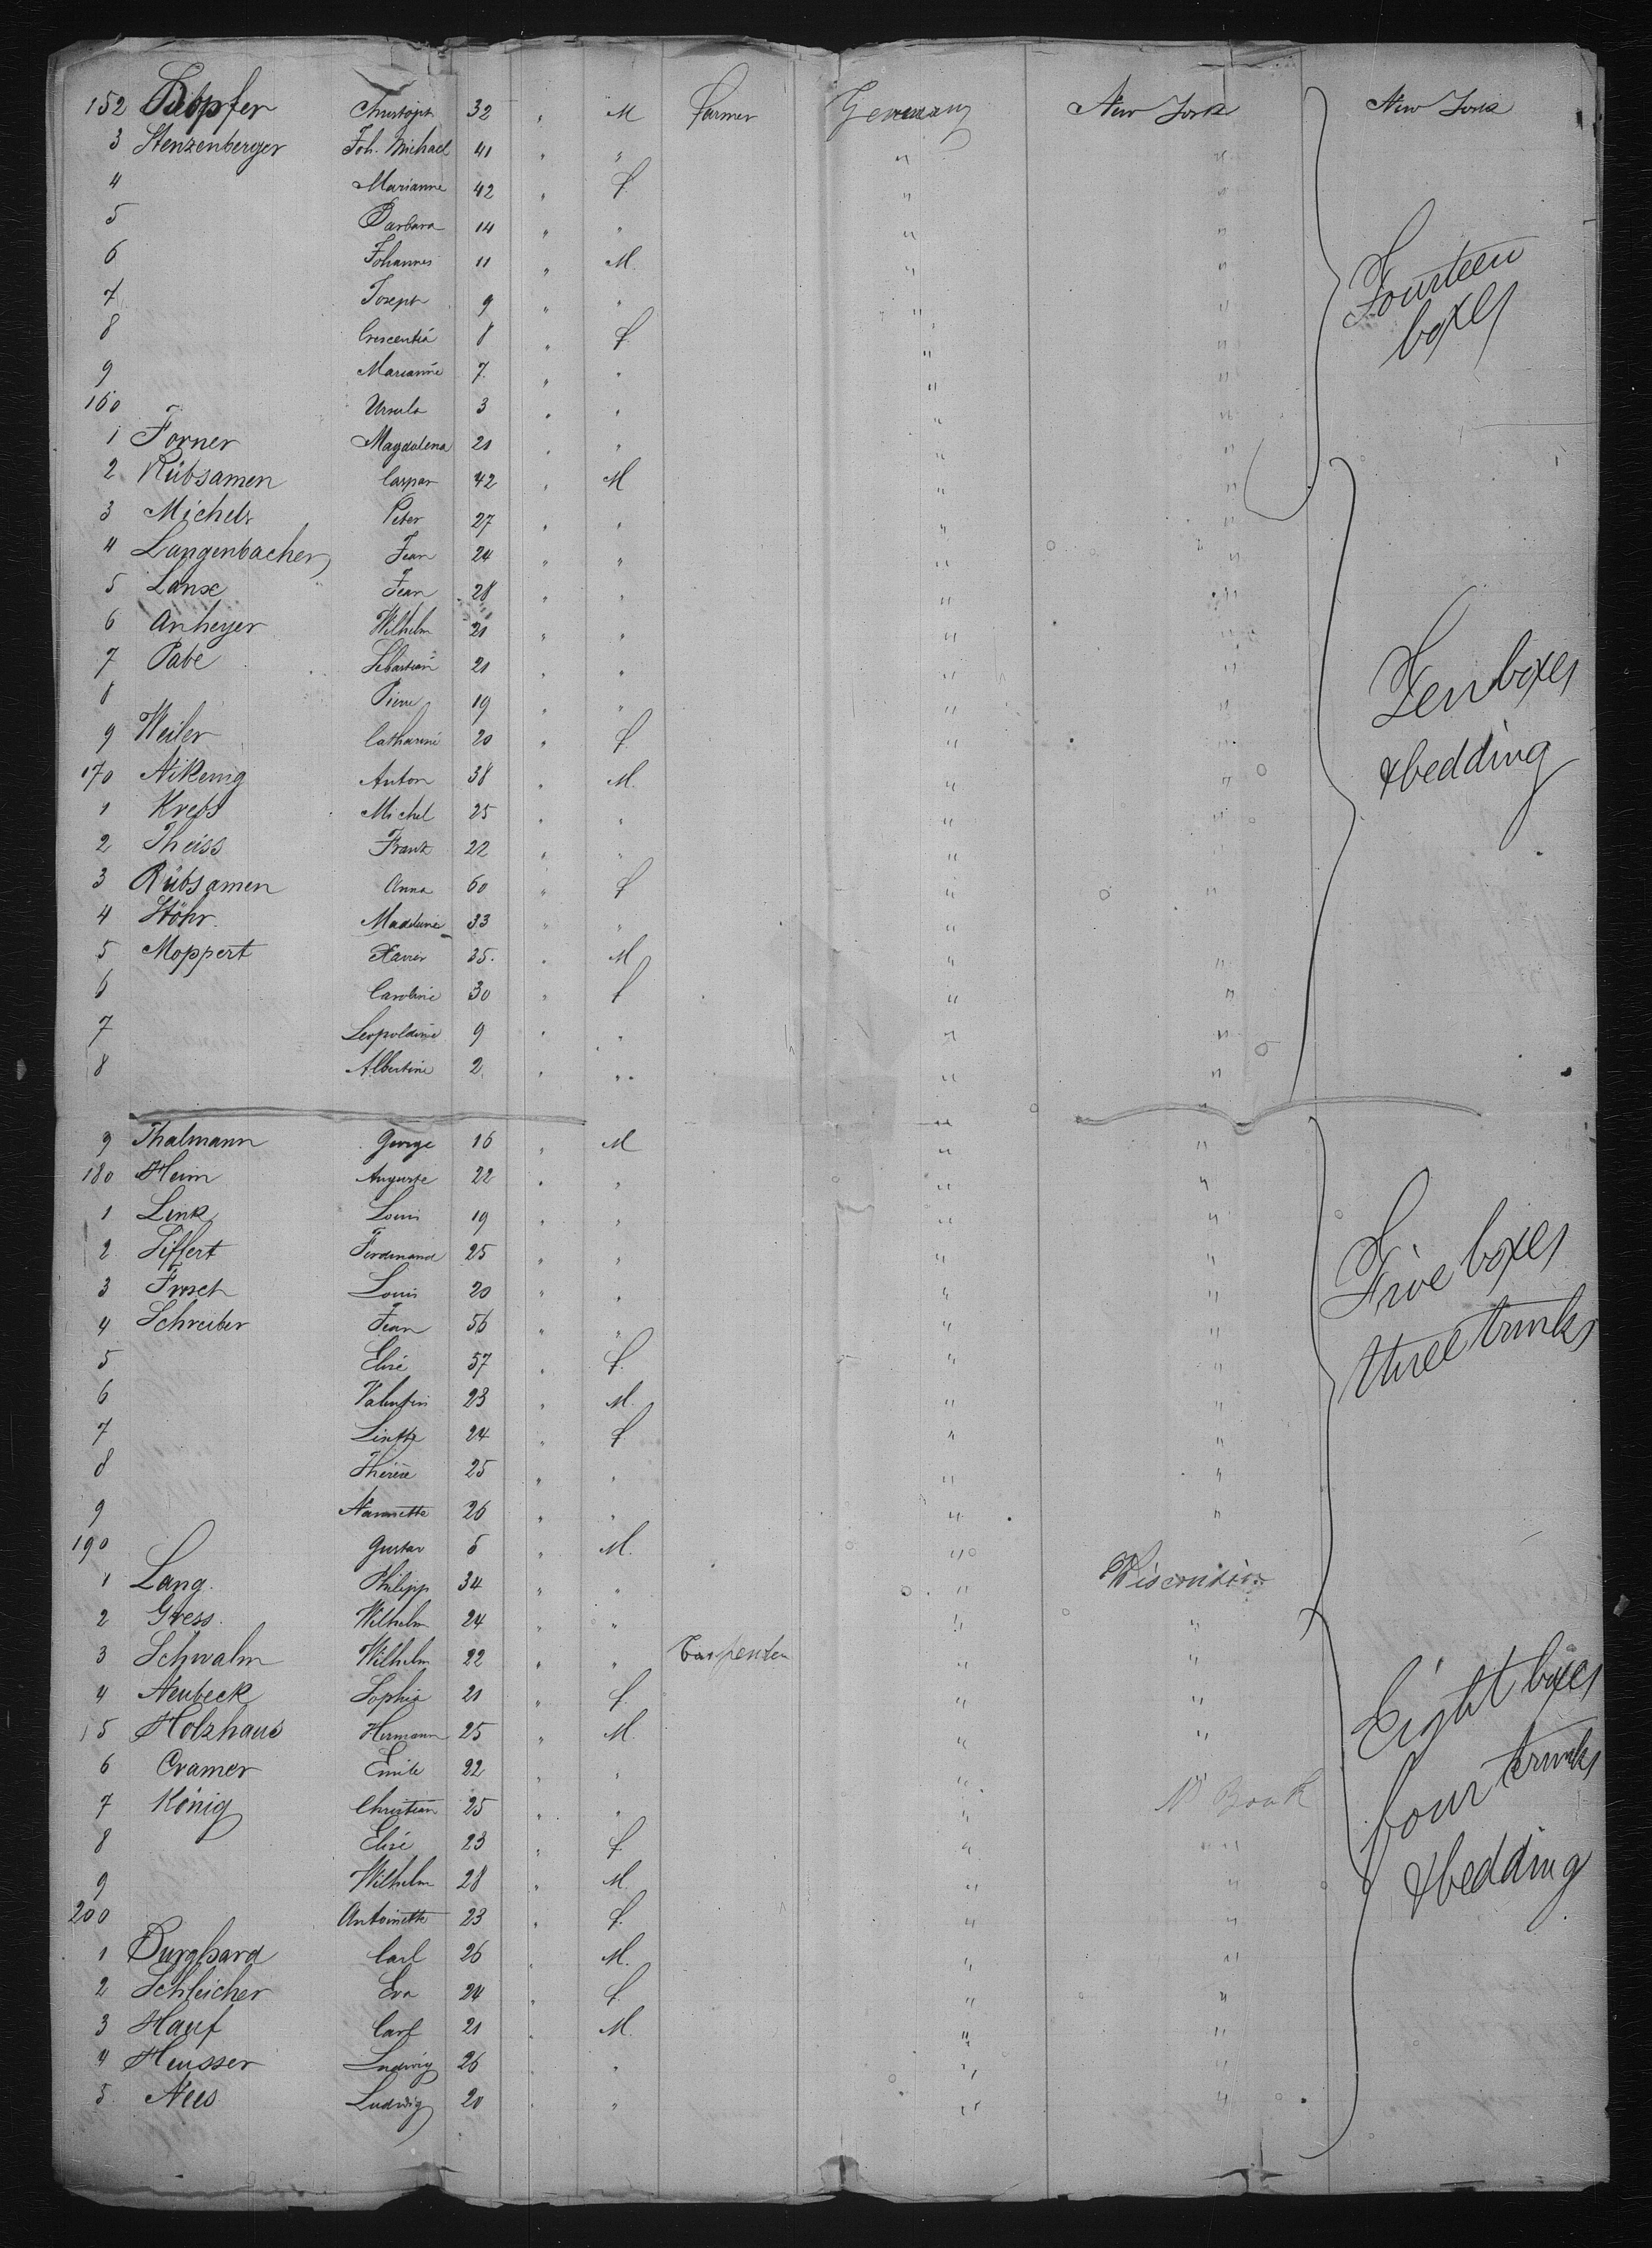 152 Christoph 32 " M farmer Germany New York New York
3 Stenzenberger Joh. Michael 41 " " " "
4 Marianne 42 " f " "
5 Barbara 14 " " " "
6 Johannes 11 " M. " "
7 Joseph 9 " " " "
8 Crescentia 8 " f. " "
Fourteen
boxes
9 Marianne 7 " " " "
160 Ursula 3 " " " "
1 Forner Magdalena 21 " " " "
2 Rübsamen Caspar 42 " M " "
3 Michels Peter 27 " " " "
4 Langenbacher Jean 24 " " " "
5 Lanx Jean 28 " " " "
6 Anheyer Wilhelm 21 " " " "
7 Pabe Sebastian 21 " " " "
8 Pierre 19 " " " "
Ten boxes
& bedding
9 Weiler Catharine 20 " f. " "
170 Nikenig Anton 38 " M. " "
1 Krebs Michel 25 " " " "
2 Theiss Frank 22 " " " "
3 Rübsamen Anna 60 " f " "
4 Stöhr. Madeleine 33 " " "
5 Moppert Xavier 35. " M " "
6 Caroline 30 " f " "
7 Leopoldine 9 " " " "
8 Albertine 2 " " " "
9 Thalmann George 16 " M " "
180 Heim Auguste 22 " " " "
1 Link Louis 19 " " " "
2 Siffert Ferdinand 25 " " " "
3 Frosch Louis 20 " " " "
Five boxes
three trunks
4 Schreiber Jean 56 " " " "
5 Elise 57 " f. " "
6 Valentin 23 " M. " "
7 Linette 24 " f " "
8 Thérèse 25 " " " "
9 Nannette 26 " " " "
190 Gustav 6 " M. "
1 Lang. Philipp 34 " " " Wisconsin
2 Gress. Wilhelm 24 " " " "
3 Schwalm Wilhelm 22 " " Carpenter " "
4 Neubeck Sophia 21 " f. " "
5 Holzhaus Hermann 25 " M. " "
6 Cramer Emile 22 " " "
Eight boxes
four trunks
& bedding
7 König Christian 25 " " "
8 Elise 23 " f. " "
9 Wilhelm 28 " M " "
200 Antoinette 23 " f. " "
1 Burghard Carl 26 " M. " "
2 Schleicher Eva 24 " f. " "
3 Hauf Carl 21 " M. " "
4 Heusser Ludwig 26 " " " "
5 Nees Ludwig 20 " " " "